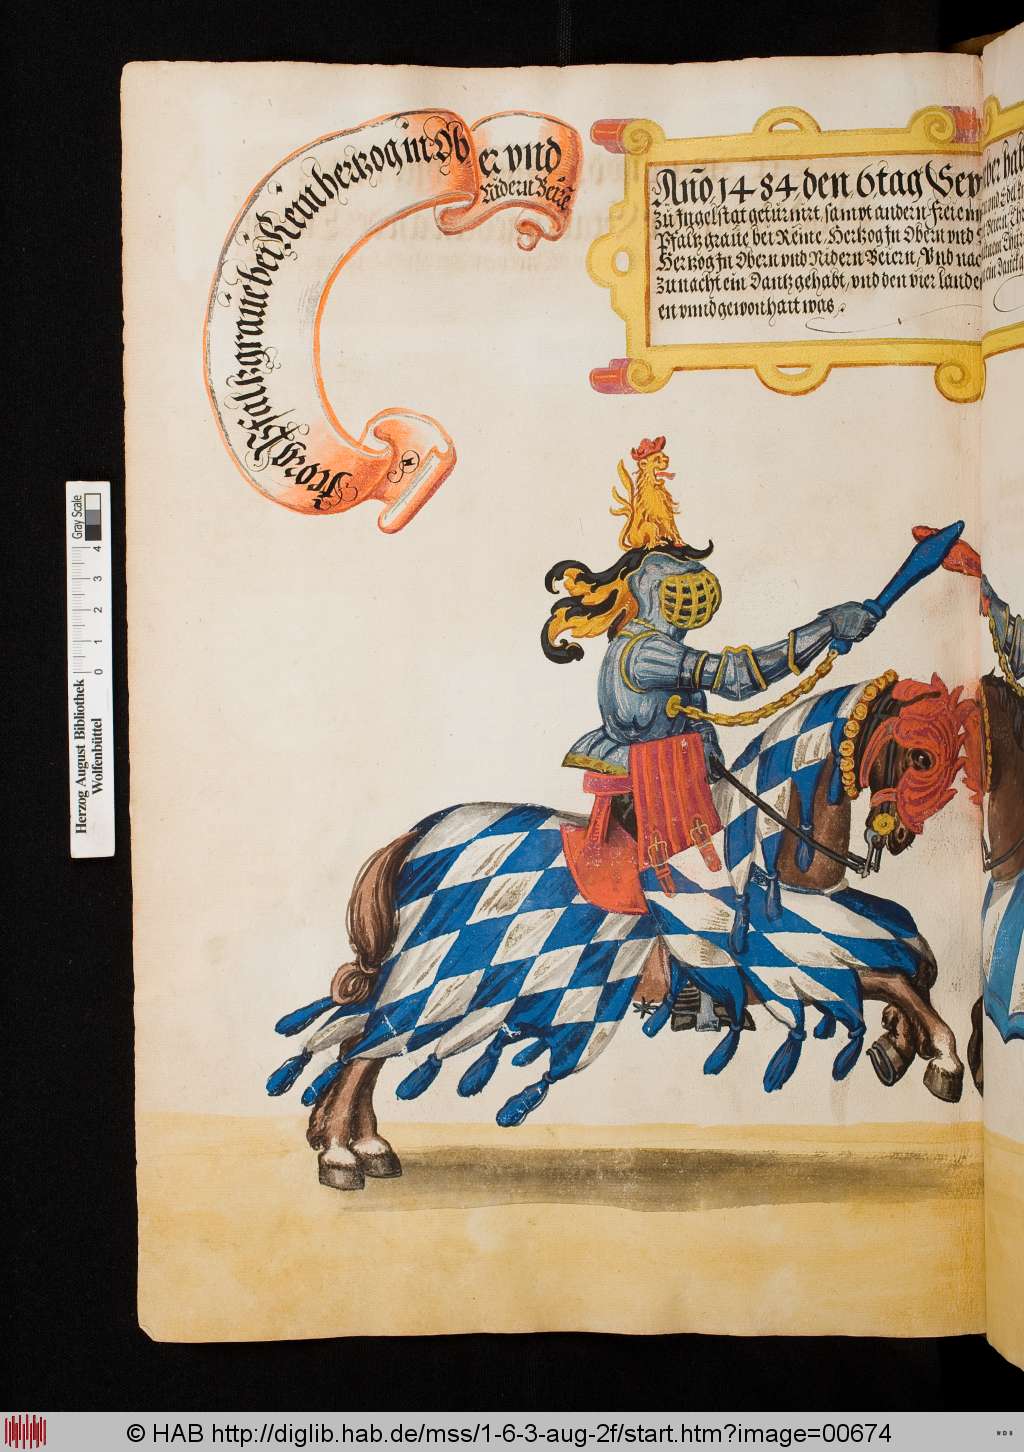 Georg Pfaltzgraue bei Rein hertzog in Ob
er vnd
Nidern Beiē
Año 1484 den 6 tag Sep
zu Ingelstat geturnirt, sampt andern freie
Pfaltzgraue bei Reine, Hertzog In Obern vnd
Hertzog In Obern vnd Nidern Beiern, Vnd nac
zu nacht ein Dantz gehabt, vnd den vier lande
en vnnd gewonhait was.
ber hab
Gray Scale
0 1 2 3 4
Herzog August Bibliothek
Wolfenbüttel
© HAB http://diglib.hab.de/mss/1-6-3-aug-2f/start.htm?image=00674